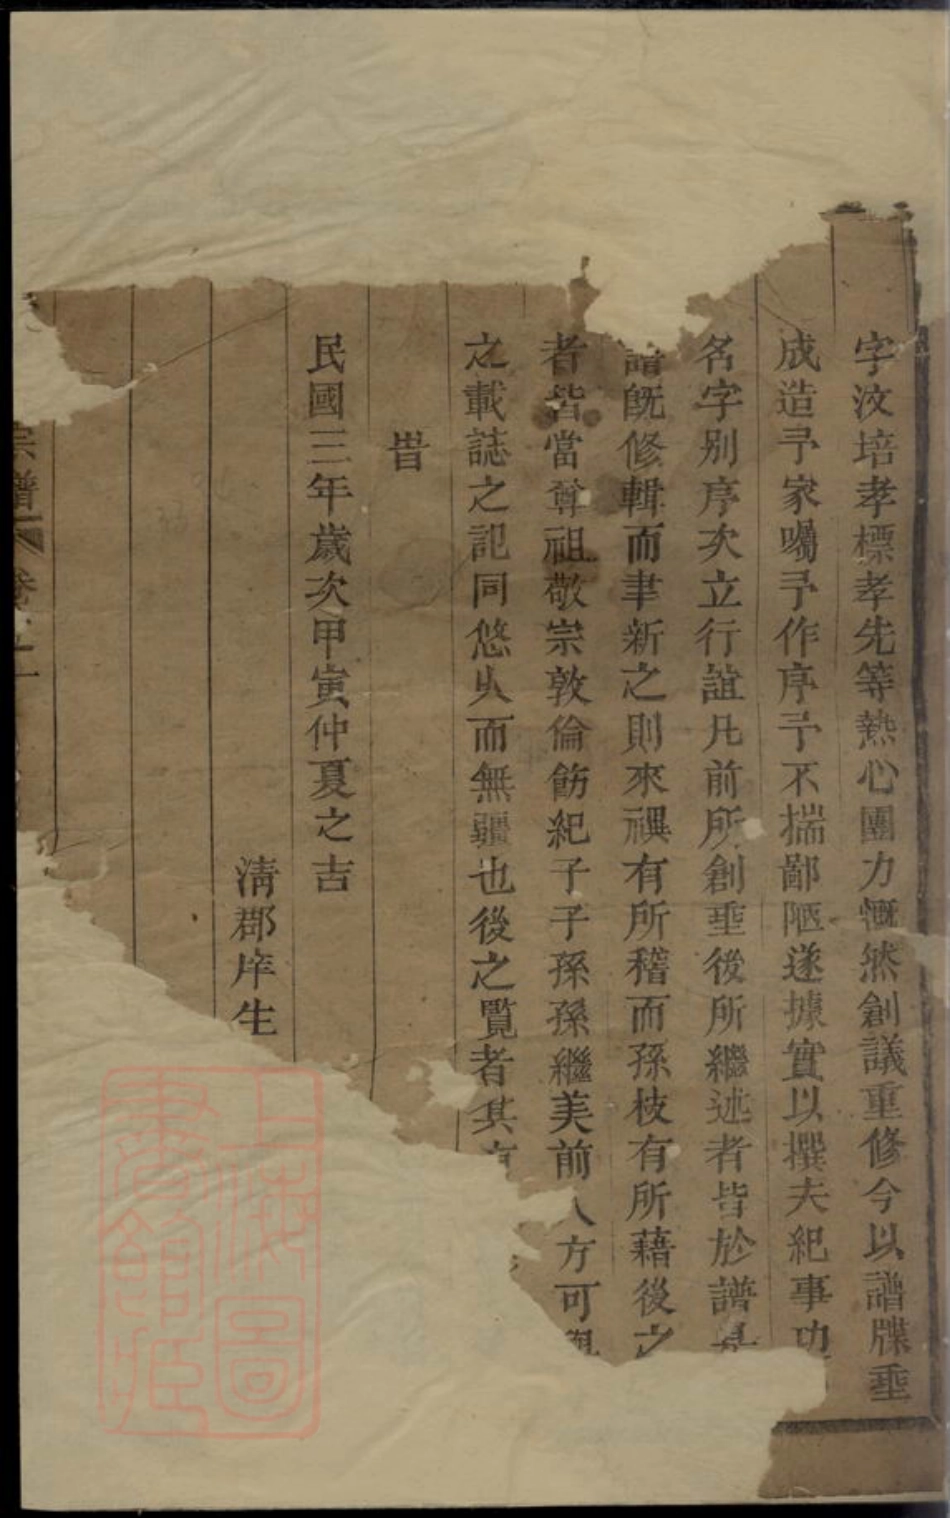 字汶培孝標孝先等熱心團力慨然創議重修今以譜牒垂
成造予家囑予作序予不揣鄙陋遂據實以撰夫紀事功
名字别序次立行誼凡前所創垂後所繼述者皆於譜是
譜既修輯而聿新之則來禩有所稽而孫枝有所藉後之
者皆當尊祖敬宗敦倫飭紀子子孫孫繼美前人方可
之載誌之記同悠久而無疆也後之覽者其
旹
民國三年歲次甲寅仲夏之吉
淸郡庠生
宗譜 卷之一
上海圖書館藏